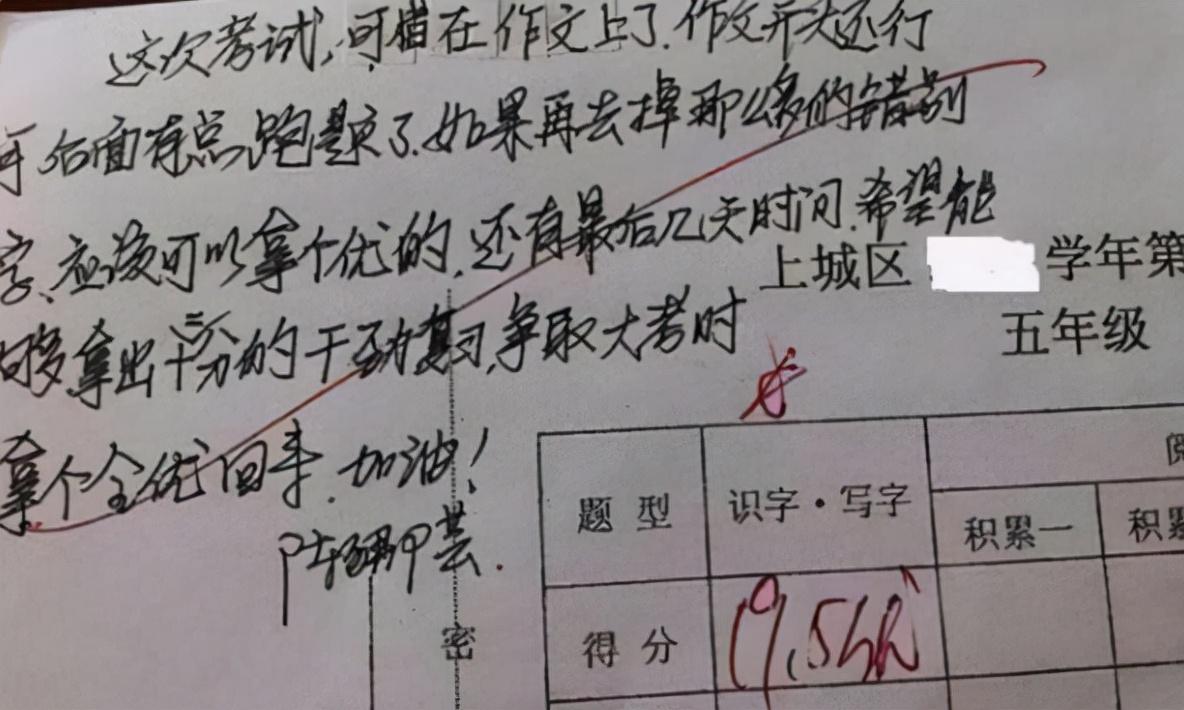 这次考试,可惜在作文上了.作文开头还行
后面有点跑题了.如果再去掉那么多的错别
字、应该可以拿个优的.还有最后几天时间.希望能
够拿出十二分的干劲复习,争取大考时
拿个全优回来.加油!
上城区 学年第
五年级
题 型 识字·写字 阅
积累一 积累
得 分 19.5
密